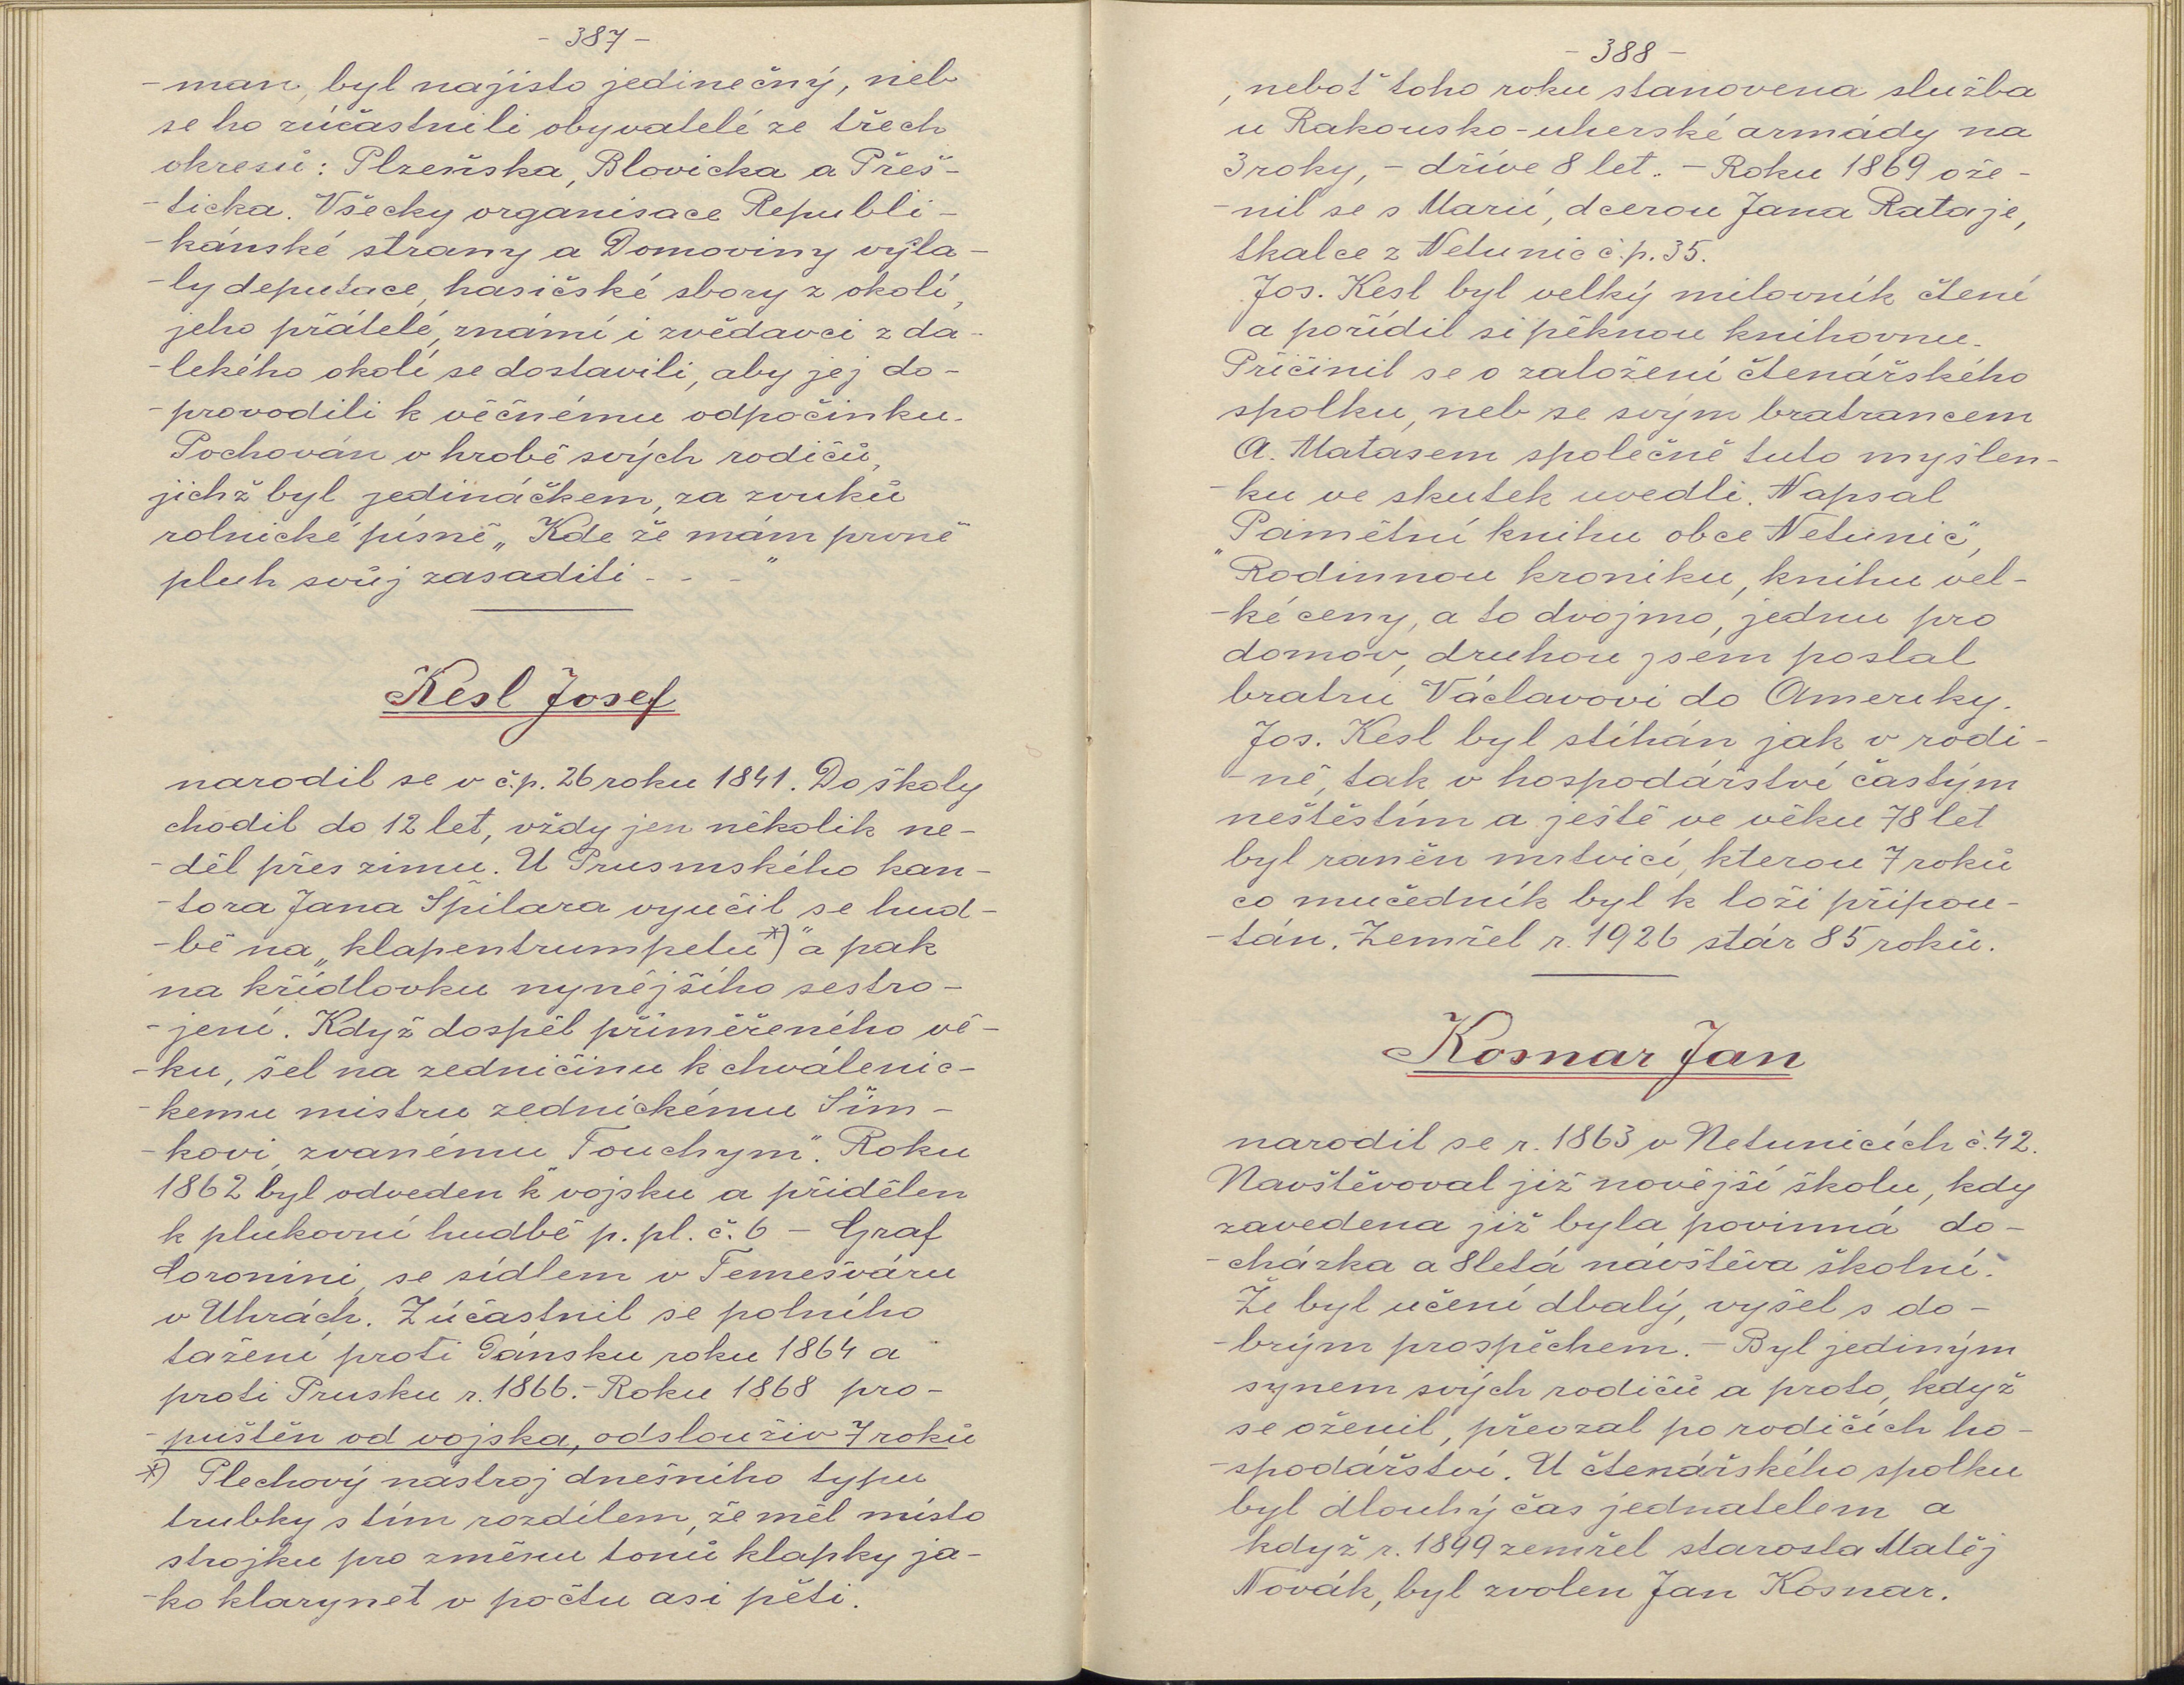 - 387 -
-man, byl najisto jedinečný, neb
se ho zúčastnili obyvatelé ze třech
okresů: Plzeňska, Blovicka a Přeš-
-ticka. Všecky organisace Republi-
-kánské strany a Domoviny vysla-
-ly deputace, hasičské sbory z okolí,
jeho přátelé, známí i zvědavci z da-
-lekého okolí se dostavili, aby jej do-
-provodili k věčnému odpočinku.
Pochován v hrobě svých rodičů,
jichž byl jedináčkem, za zvuků
rolnické písně „Kde že mám prvně
pluh svůj zasaditi - - - "
Kesl Josef
narodil se v č.p. 26 roku 1841. Do školy
chodil do 12 let, vždy jen několik ne-
-děl přes zimu. U Prusinského kan-
-tora Jana Špilara vyučil se hud-
-bě na „klapentrumpetu*)" a pak
na křídlovku nynějšího sestro-
-jení. Když dospěl přiměřeného vě-
-ku, šel na zedničinu k chválenic-
-kemu mistru zednickému Šim-
-kovi, zvanému „Touchym". Roku
1862 byl odveden k vojsku a přidělen
k plukovní hudbě p. pl. č. 6 - Graf
Coronini, se sídlem v Temešváru
v Uhrách. Zúčastnil se polního
tažení proti Dánsku roku 1864 a
proti Prusku r. 1866. - Roku 1868 pro-
-puštěn od vojska, odslouživ 7 roků
*) Plechový nástroj dnešního typu
trubky s tím rozdílem, že měl místo
strojku pro změnu tonů klapky ja-
-ko klarynet v počtu asi pěti.
- 388 -
, neboť toho roku stanovena služba
u Rakousko-uherské armády na
3 roky, - dříve 8 let. - Roku 1869 ože-
-nil se s Marií, dcerou Jana Rataje,
tkalce z Netunic č.p. 35.
Jos. Kesl byl velký milovník čtení
a pořídil si pěknou knihovnu.
Přičinil se o založení čtenářského
spolku, neb se svým bratrancem
A. Matasem společně tuto myšlen-
-ku ve skutek uvedli. Napsal
„Pamětní knihu obce Netunic",
Rodinnou kroniku, knihu vel-
-ké ceny, a to dvojmo, jednu pro
domov, druhou jsem poslal
bratru Václavovi do Ameriky.
Jos. Kesl byl stíhán jak v rodi-
-ně, tak v hospodářství častým
neštěstím a ještě ve věku 78 let
byl raněn mrtvicí, kterou 7 roků
co mučedník byl k loži připou-
-tán. Zemřel r. 1926 stár 85 roků.
Kosnar Jan
narodil se r. 1863 v Netunicích č. 42.
Navštěvoval již novější školu, kdy
zavedena již byla povinná do-
-cházka a 8letá návštěva školní.
Že byl učení dbalý, vyšel s do-
-brým prospěchem. - Byl jediným
synem svých rodičů a proto, když
se oženil, převzal po rodičích ho-
-spodářství. U čtenářského spolku
byl dlouhý čas jednatelem a
když r. 1899 zemřel starosta Matěj
Novák, byl zvolen Jan Kosnar.